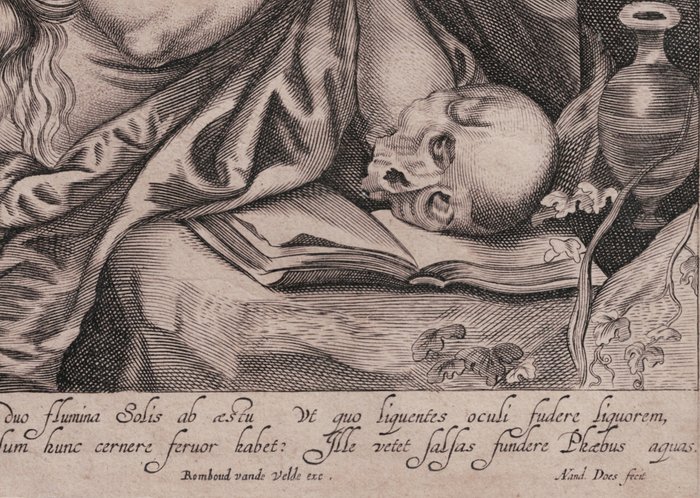 duo flumina Solis ab æstu Vt quo liquentes oculi fudere liquorem,
lum hunc cernere feruor habet? Ille vetet salsas fundere Phæbus aquas.
Romboud vande Velde exc.
And. Does fecit